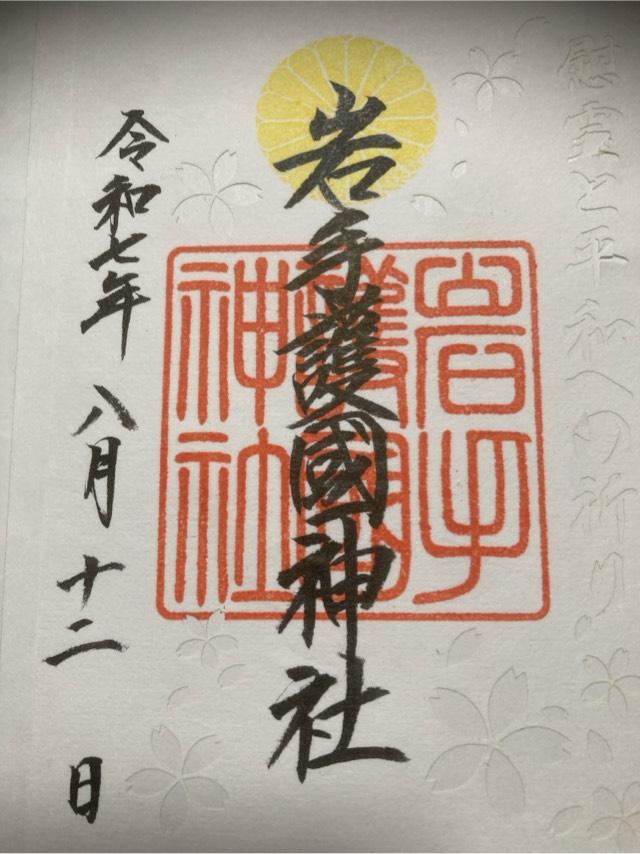 慰霊と平和への祈り
岩手護國神社
岩手
護國
神社
令和七年八月十二日